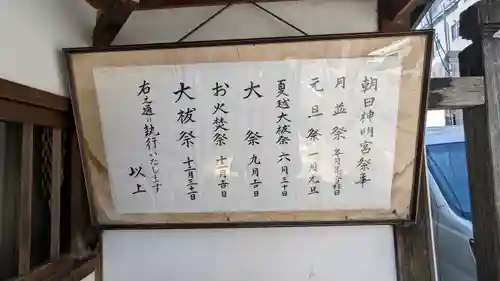 朝日神明宮祭事
月並祭 各月一日十五日
元旦祭 一月元旦
夏越大祓祭 六月三十日
大祭 九月
お火焚祭 十一月
大祓祭 十二月三十一日
右之通り執行いたします
以上